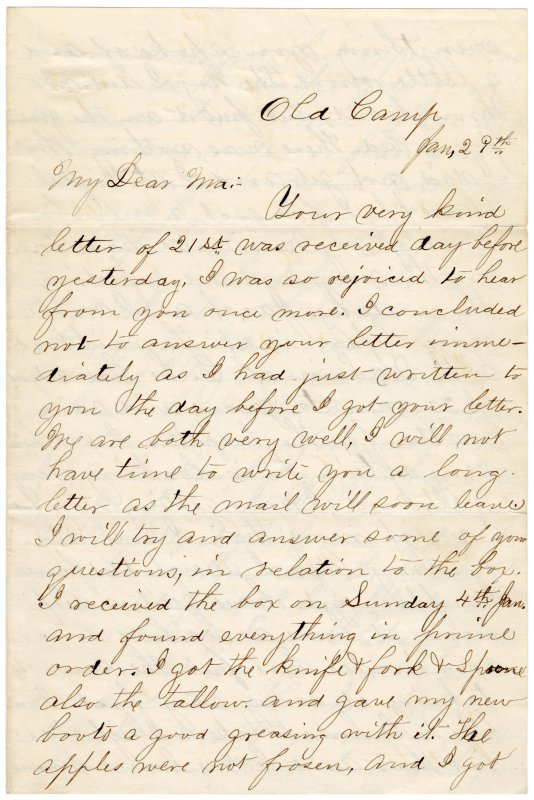 Old Camp
Jan, 29th
My Dear Ma:-
Your very kind
letter of 21st was received day before
yesterday, I was so rejoiced to hear
from you once more. I concluded
not to answer your letter imme-
diately as I had just written to
you the day before I got your letter.
We are both very well, I will not
have time to write you a long
letter as the mail will soon leave.
I will try and answer some of your
questions, in relation to the box.
I received the box on Sunday 4th Jan.
and found everything in prime
order. I got the knife & fork & Spoone
also the tallow. and gave my new
boots a good greasing with it. The
apples were not frosen, and I got